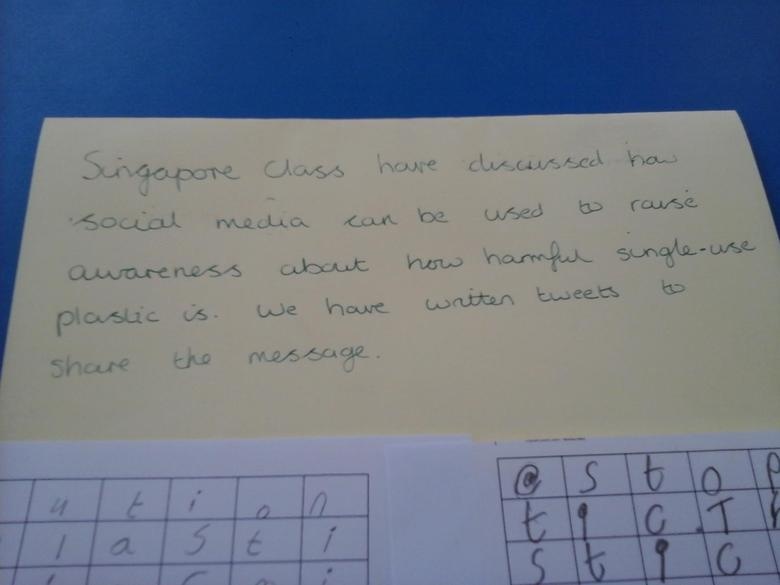 Singapore Class have discussed how
social media can be used to raise
awareness about how harmful single-use
plastic is. We have written tweets to
share the message.
u t i o n
l a s t i
@ s t o p
t i c . T h
s t i c